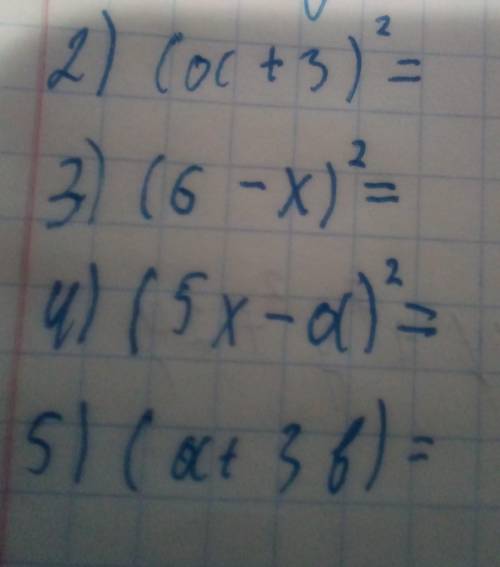 2) (a + 3)² =
3) (6 - x)² =
4) (5x - a)² =
5) (a + 3b) =